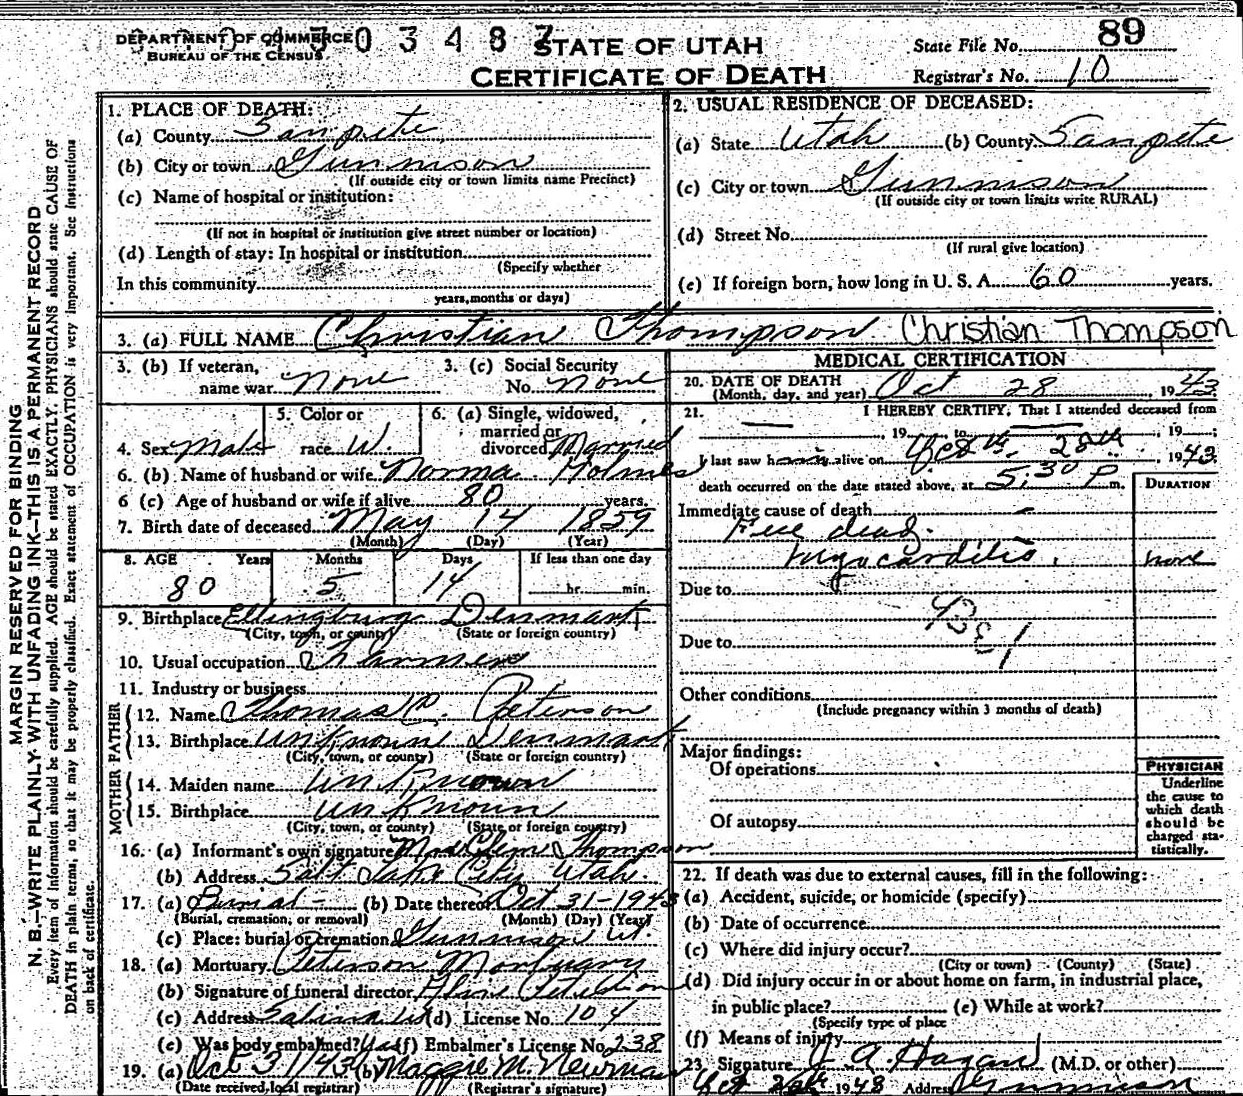 DEPARTMENT OF COMMERCE
BUREAU OF THE CENSUS
503487
STATE OF UTAH
CERTIFICATE OF DEATH
State File No. 89
Registrar's No. 10
MARGIN RESERVED FOR BINDING
N. B.—WRITE PLAINLY WITH UNFADING INK—THIS IS A PERMANENT RECORD
Every item of information should be carefully supplied. AGE should be stated EXACTLY. PHYSICIANS should state CAUSE OF
DEATH in plain terms, so that it may be properly classified. Exact statement of OCCUPATION is very important. See Instructions
on back of certificate.
1. PLACE OF DEATH:
(a) County Sanpete
(b) City or town Gunnison
(If outside city or town limits name Precinct)
(c) Name of hospital or institution:
(If not in hospital or institution give street number or location)
(d) Length of stay: In hospital or institution
(Specify whether
In this community
years, months or days)
2. USUAL RESIDENCE OF DECEASED:
(a) State Utah (b) County Sanpete
(c) City or town Gunnison
(If outside city or town limits write RURAL)
(d) Street No.
(If rural give location)
(e) If foreign born, how long in U. S. A. 60 years.
3. (a) FULL NAME Christian Thompson Christian Thompson
3. (b) If veteran, name war none
3. (c) Social Security No. none
4. Sex Male
5. Color or race W
6. (a) Single, widowed, married or divorced Married
6. (b) Name of husband or wife Norma Holmes
6 (c) Age of husband or wife if alive 80 years.
7. Birth date of deceased May 14 1859
(Month) (Day) (Year)
8. AGE Years Months Days If less than one day
80 5 14 hr. min.
9. Birthplace Denmark
(City, town, or county) (State or foreign country)
10. Usual occupation Farmer
11. Industry or business
FATHER
12. Name Thomas Peterson
13. Birthplace Unknown Denmark
(City, town, or county) (State or foreign country)
MOTHER
14. Maiden name Unknown
15. Birthplace Unknown
(City, town, or county) (State or foreign country)
16. (a) Informant's own signature Thompson
(b) Address Salt Lake City Utah.
17. (a) Burial (b) Date thereof Oct 31-1943
(Burial, cremation, or removal) (Month) (Day) (Year)
(c) Place: burial or cremation Gunnison Ut.
18. (a) Mortuary Peterson Mortuary
(b) Signature of funeral director
(c) Address Salina Ut (d) License No. 104
(e) Was body embalmed? Yes (f) Embalmer's License No. 238
19. (a) Oct 31/43 (b) Maggie M. Newman
(Date received, local registrar) (Registrar's signature)
MEDICAL CERTIFICATION
20. DATE OF DEATH
(Month, day, and year) Oct 28 1943
21. I HEREBY CERTIFY, That I attended deceased from
, 19 to , 19 ;
I last saw h alive on Oct 28th 1943
death occurred on the date stated above, at 5:30 P m.
DURATION
Immediate cause of death
dead.
Myocarditis. none
Due to
Due to
Other conditions
(Include pregnancy within 3 months of death)
Major findings:
Of operations
Of autopsy
PHYSICIAN
Underline
the cause to
which death
should be
charged sta-
tistically.
22. If death was due to external causes, fill in the following:
(a) Accident, suicide, or homicide (specify)
(b) Date of occurrence
(c) Where did injury occur?
(City or town) (County) (State)
(d) Did injury occur in or about home on farm, in industrial place,
in public place? (e) While at work?
(Specify type of place
(f) Means of injury
23. Signature J. A. Hagan (M.D. or other)
Oct 1943 Address Gunnison